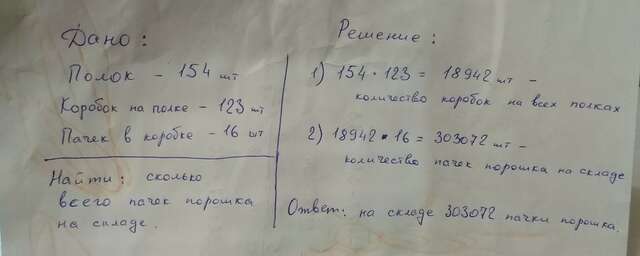 Дано:
Полок - 154 шт
Коробок на полке - 123 шт
Пачек в коробке - 16 шт
Найти: сколько
всего пачек порошка
на складе.
Решение:
1) 154 · 123 = 18942 шт -
количество коробок на всех полках
2) 18942 · 16 = 303072 шт -
количество пачек порошка на складе
Ответ: на складе 303072 пачки порошка.